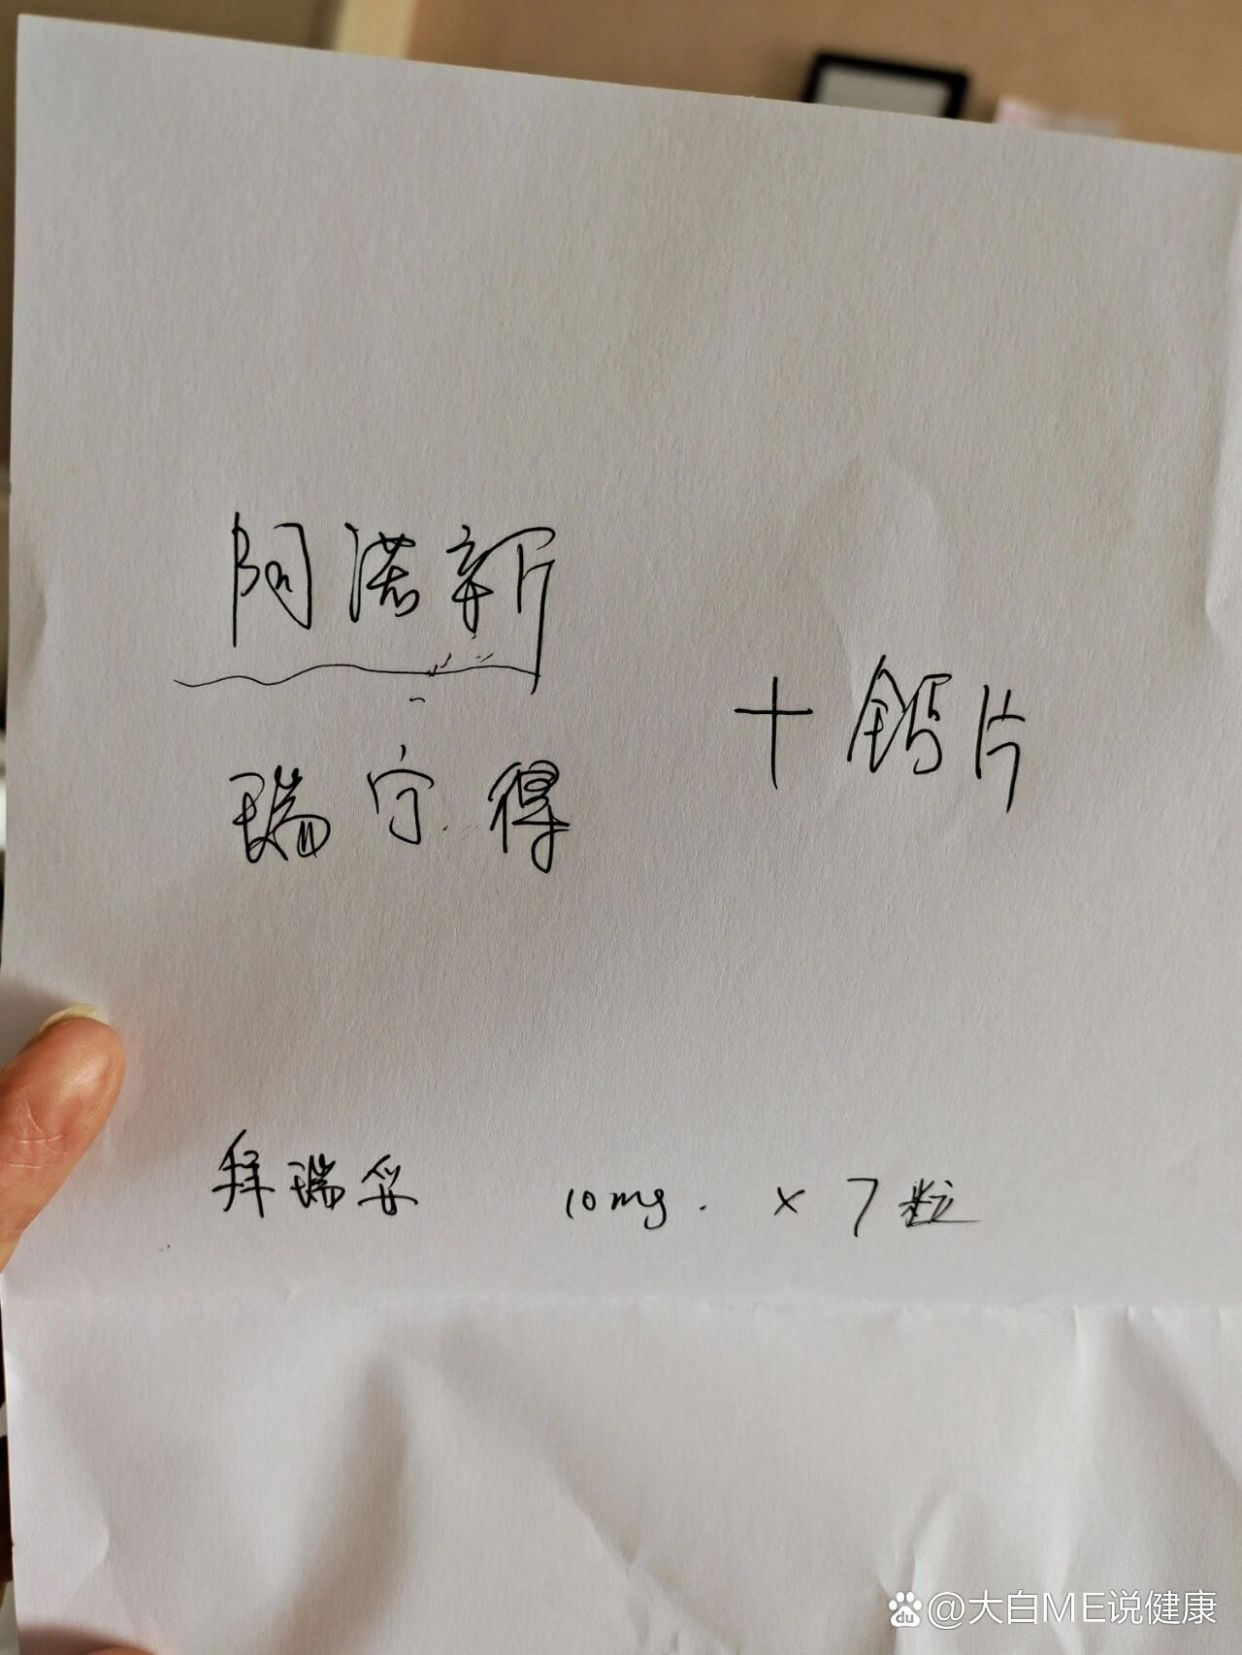 阿诺新
+钙片
瑞宁得
拜瑞妥 10mg. ×7粒
@大白ME说健康